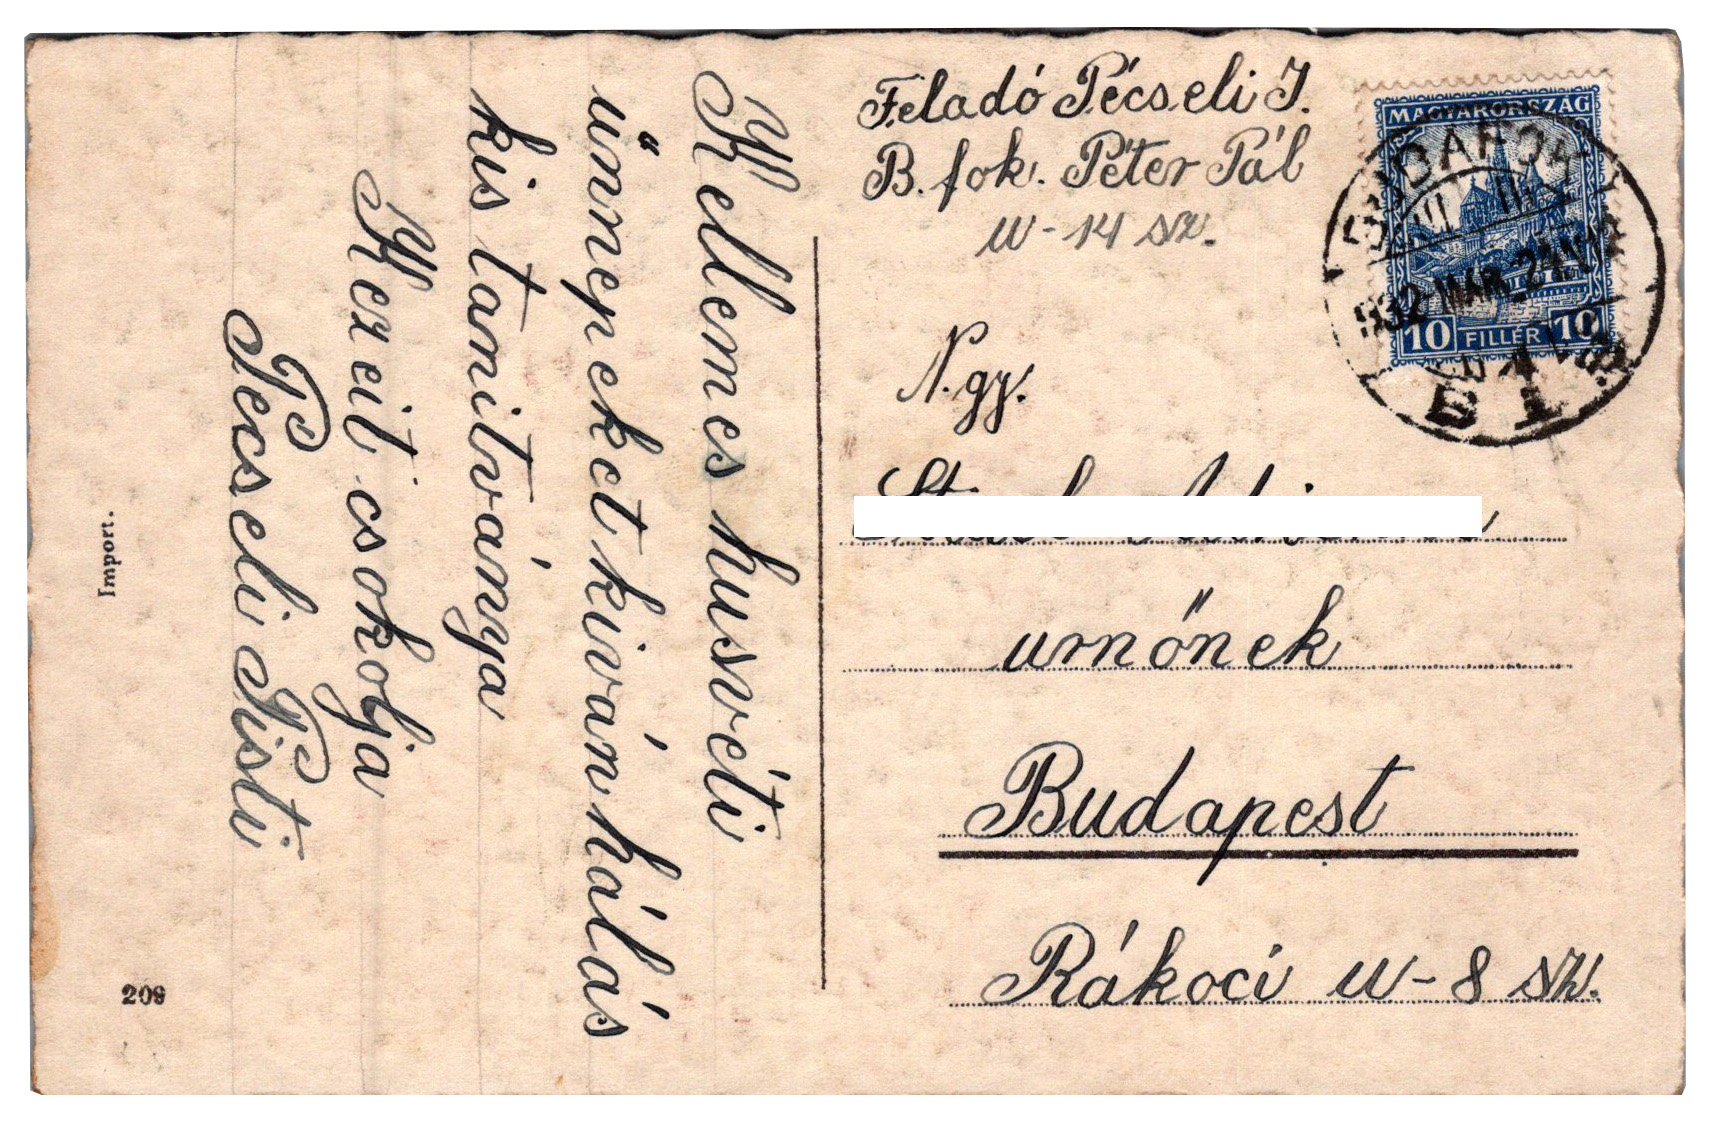 Kellemes husvéti
ünnepeket kiván hálás
kis tanitványa
Kezeit csokolja
Pécseli Pisti
Import.
209
Feladó Pécseli I.
B. fok. Péter Pál
u-14 sz.
MAGYARORSZÁG
10 FILLÉR 10
BUDAFOK
932 MÁR. 24
B 1
N. gy.
urnőnek
Budapest
Rákoci u-8 sz.